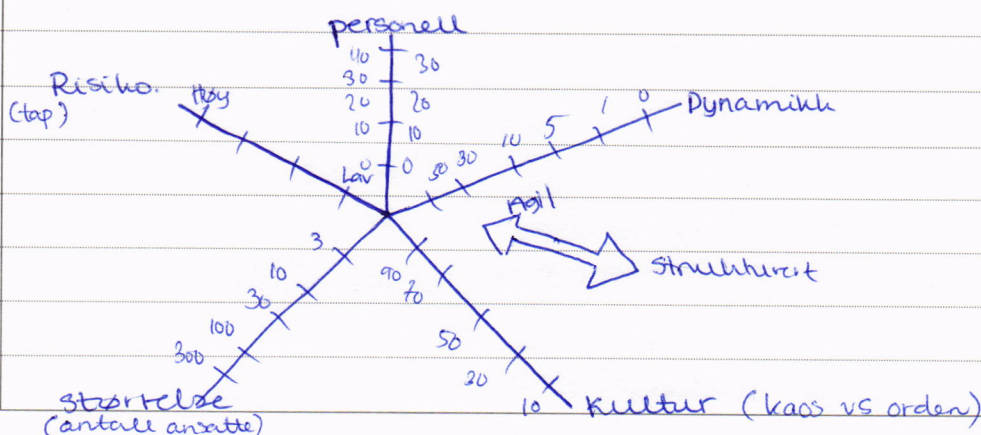 personell
40 30
30
20 20
10 10
0 0
Risiko.
(tap)
Høy
Lav
Dynamikk
0
1
5
10
30
50
Agil
Strukturert
3
10
30
100
300
Størrelse
(antall ansatte)
90
70
50
20
10
Kultur (kaos vs orden)